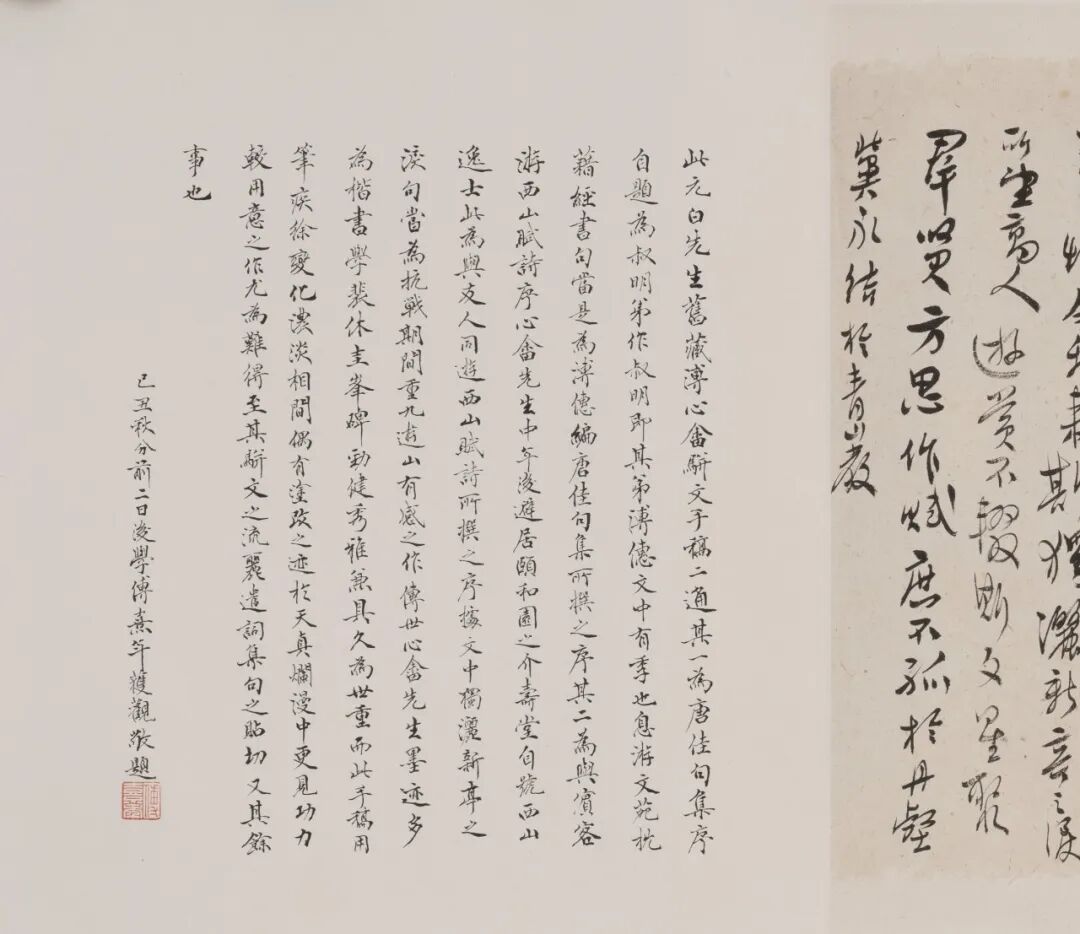 所望高人遊賞不輟斯文星聚
羣賢方思作賦庶不孤於丹壑
冀永結於青山歟
此元白先生舊藏溥心畬駢文手稿二通其一為唐佳句集序
自題為叔明弟作叔明即其弟溥僡文中有季也息游文苑枕
藉經書句當是為溥僡編唐佳句集所撰之序其二為與賓客
游西山賦詩序心畬先生中年後避居頤和園之介壽堂自號西山
逸士此為與友人同遊西山賦詩所撰之序據文中獨灑新亭之
淚句當為抗戰期間重九遊山有感之作傳世心畬先生墨迹多
為楷書學裴休圭峯碑勁健秀雅兼具久為世重而此手稿用
筆疾徐變化濃淡相間偶有塗改之迹於天真爛漫中更見功力
較用意之作尤為難得至其駢文之流麗遣詞集句之貼切又其餘
事也
己丑秋分前二日後學傅熹年獲觀敬題